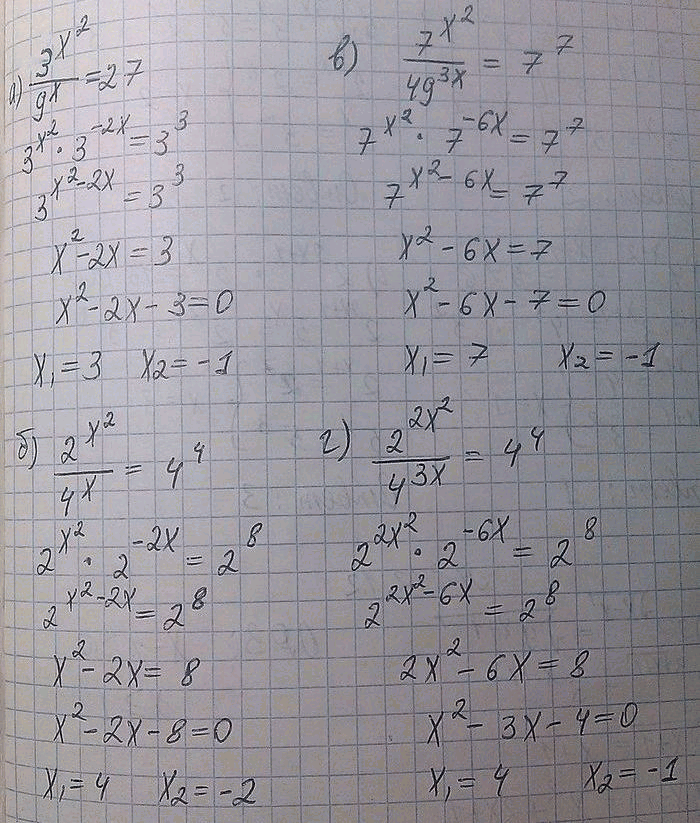 а) 3^(x^2)/9^x = 27
3^(x^2) · 3^(-2x) = 3^3
3^(x^2-2x) = 3^3
x^2 - 2x = 3
x^2 - 2x - 3 = 0
x₁ = 3 x₂ = -1
в) 7^(x^2)/49^(3x) = 7^7
7^(x^2) · 7^(-6x) = 7^7
7^(x^2-6x) = 7^7
x^2 - 6x = 7
x^2 - 6x - 7 = 0
x₁ = 7 x₂ = -1
б) 2^(x^2)/4^x = 4^4
2^(x^2) · 2^(-2x) = 2^8
2^(x^2-2x) = 2^8
x^2 - 2x = 8
x^2 - 2x - 8 = 0
x₁ = 4 x₂ = -2
г) 2^(2x^2)/4^(3x) = 4^4
2^(2x^2) · 2^(-6x) = 2^8
2^(2x^2-6x) = 2^8
2x^2 - 6x = 8
x^2 - 3x - 4 = 0
x₁ = 4 x₂ = -1